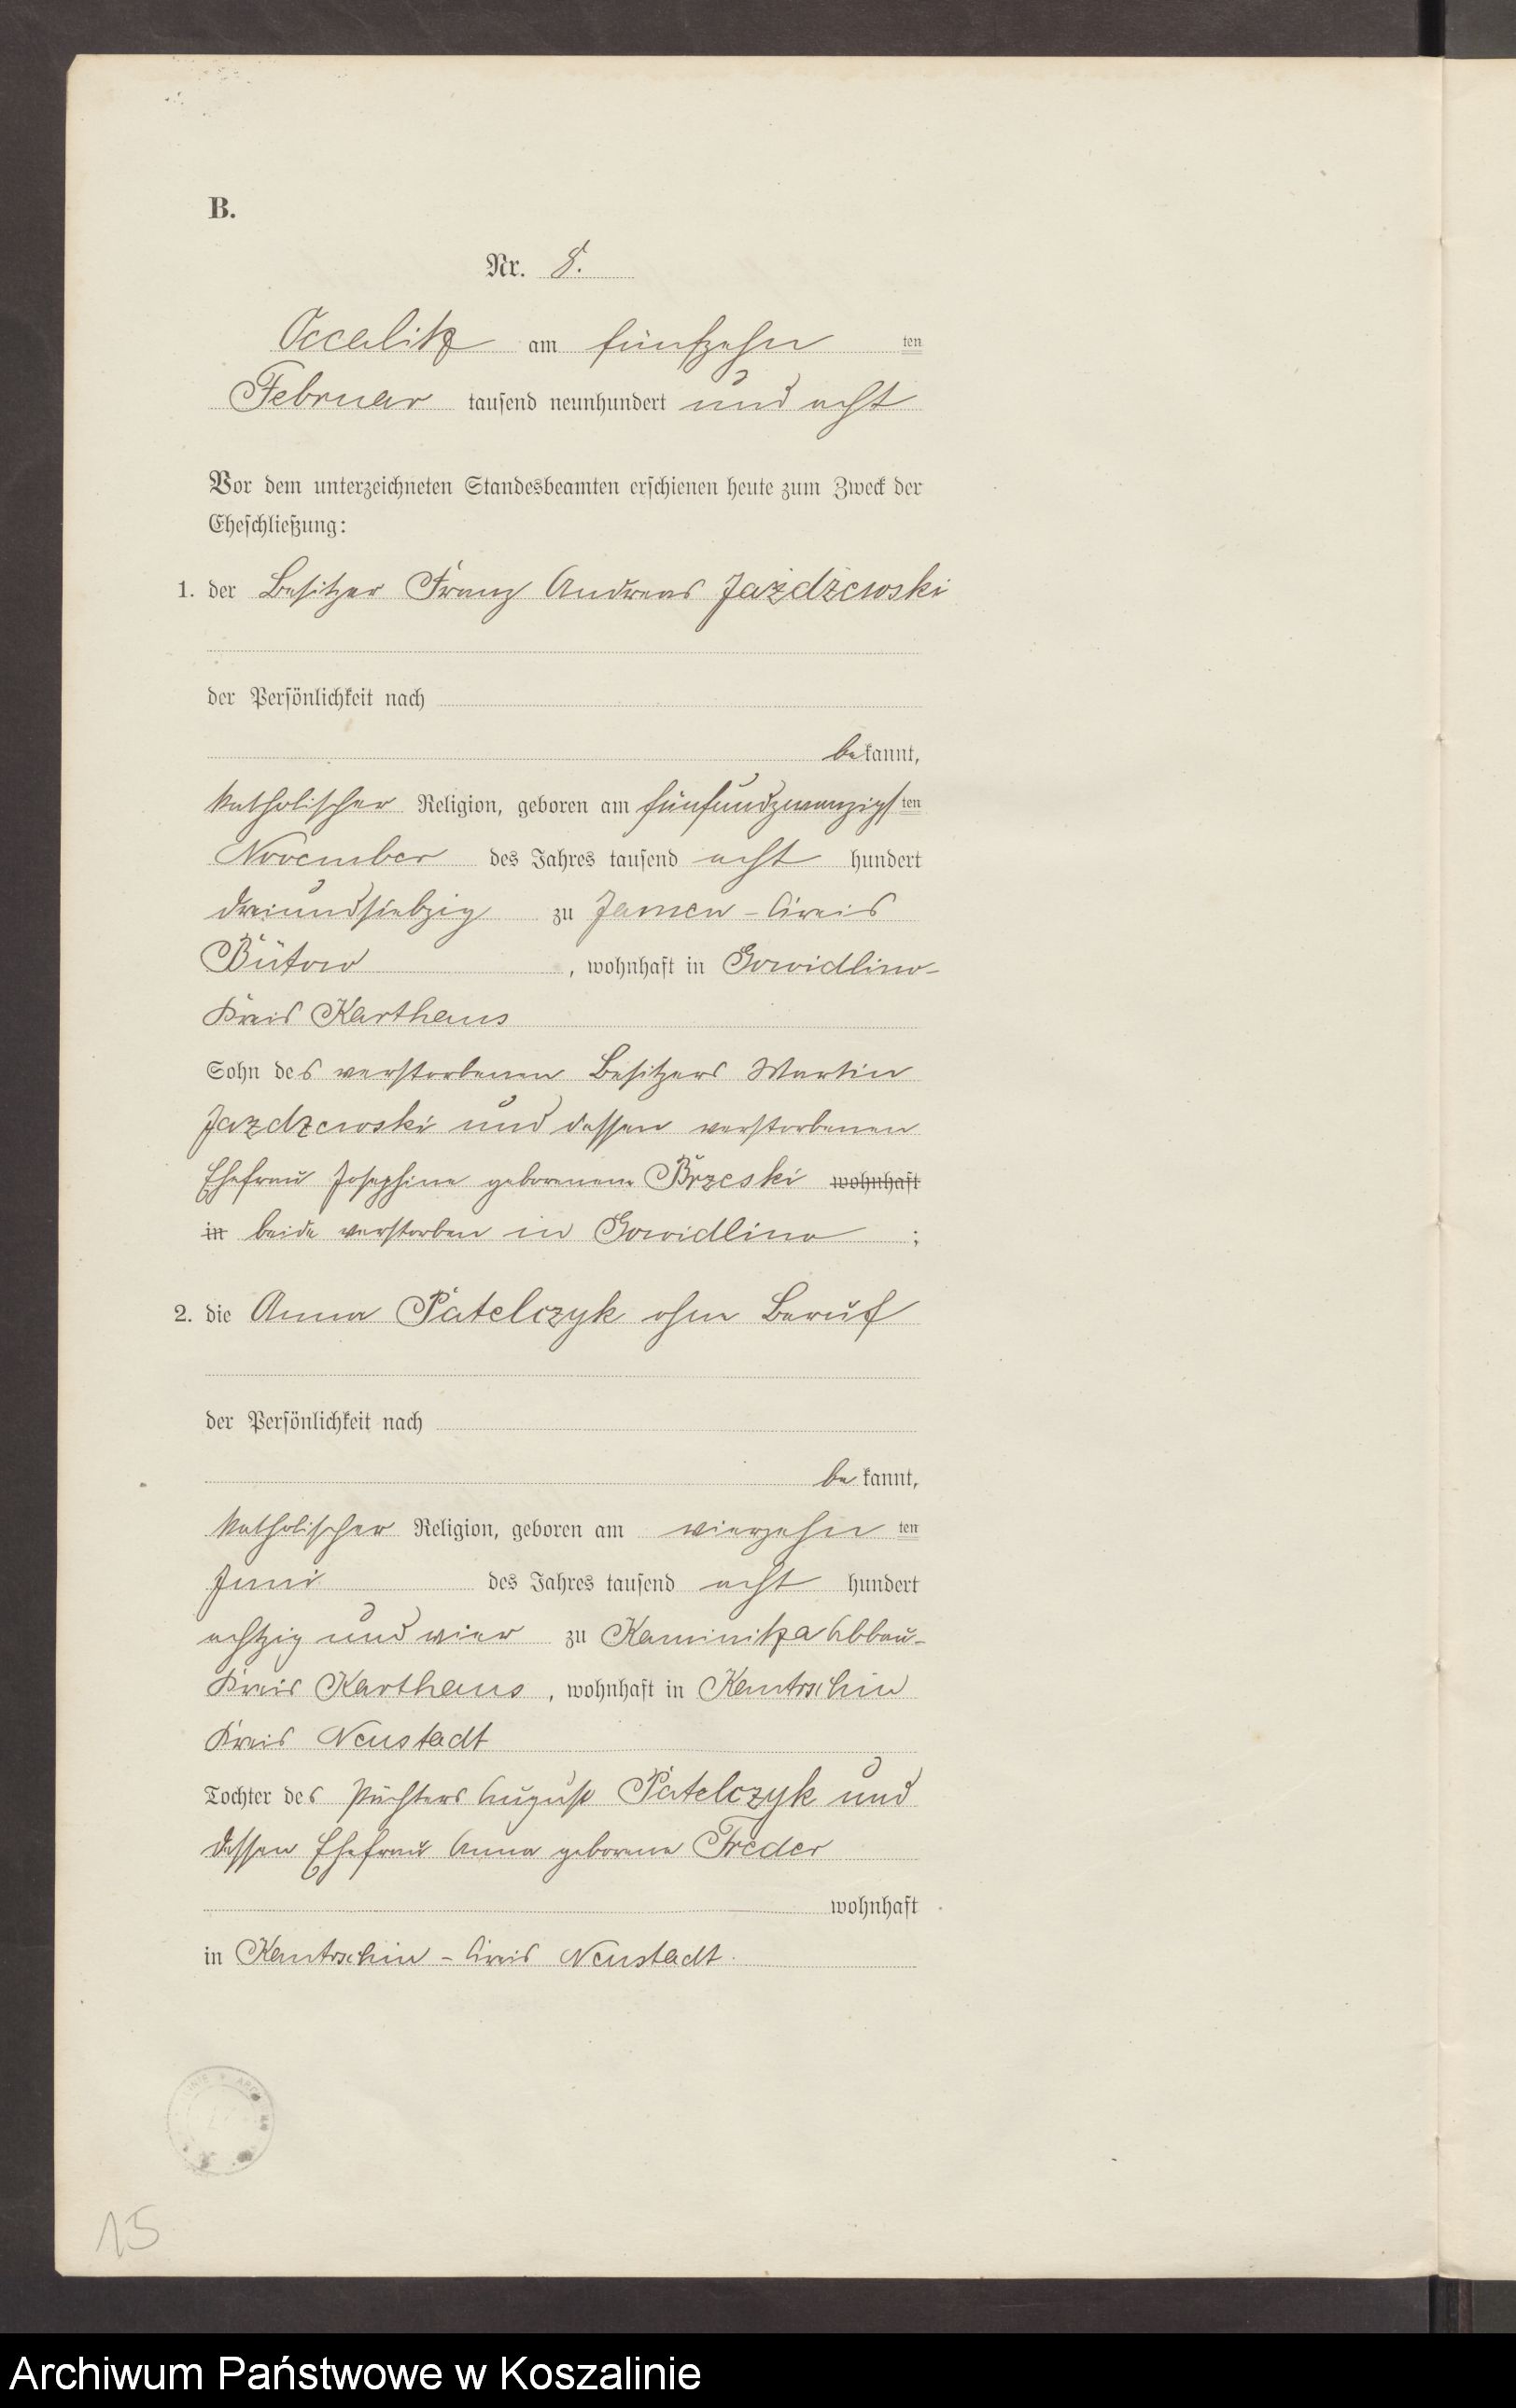 B.
Nr. 8.
Occalitz am fünfzehn ten
Februar tausend neunhundert und acht
Vor dem unterzeichneten Standesbeamten erschienen heute zum Zweck der
Eheschließung:
1. der Besitzer Franz Andreas Jażdżewski
der Persönlichkeit nach
bekannt,
katholischer Religion, geboren am fünfundzwanzigsten
November des Jahres tausend acht hundert
dreiundsiebzig zu Jamen - Kreis
Bütow, wohnhaft in Gowidlino-
Kreis Karthaus
Sohn des verstorbenen Besitzers Martin
Jazdzewski und dessen verstorbenen
Ehefrau Josephine geborenen Brzeski wohnhaft
in beide verstorben in Gowidlino ;
2. die Anna Patelczyk ohne Beruf
der Persönlichkeit nach
bekannt,
katholischer Religion, geboren am vierzehn ten
Juni des Jahres tausend acht hundert
achtzig und vier zu Kaminitza Abbau-
Kreis Karthaus, wohnhaft in Kantrschin
Kreis Neustadt
Tochter des Pächters August Patelczyk und
dessen Ehefrau Anna geborene Treder
wohnhaft
in Kantrschin - Kreis Neustadt.
15
Archiwum Państwowe w Koszalinie